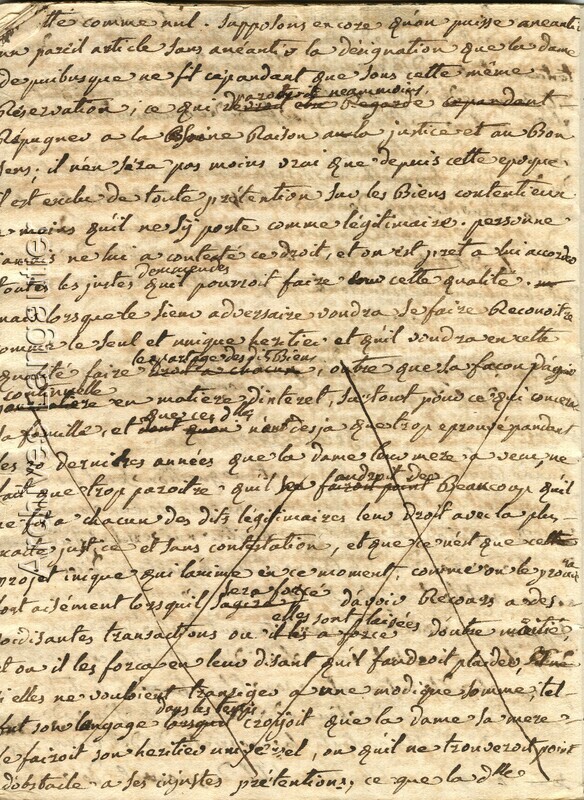 été comme nul. Supposons encore qu'on puisse aneantir
un pareil article sans aneantir la designation que la dame
de puibusque ne fit cependant que sous cette même
Reservation, ce qui paroitroit neammoins
Repugner a la saine Raison a la justice et au Bon
sens; il n'en sera pas moins vrai que depuis cette epoque
il est exclu de toute prétention sur les Biens contentieux
a moins qu'il ne s'y porte comme légitimaire. personne
jamais ne lui a contesté ce droit, et on est pret a lui accorder
toutes les justes demandes qu'il pourroit faire en cette qualité.
mais lorsque le sieur adversaire voudra se faire Reconoitre
comme le seul et unique heritier et qu'il voudra en cette
qualité faire le partage des dits Biens, outre que la façon d'agir
continuelle en matiere d'interet, surtout pour ce qui concerne
sa famille, et que ces dlles n'ont deja que trop eprouvé pendant
les 20 dernieres années que la dame leur mere a vecu, ne
fait que trop paroitre qu'il s'en faudroit de Beaucoup qu'il
ne fit a chacun des dits légitimaires leur droit avec la plus
exacte justice et sans contestation, et que ce n'est que cette
projet inique qui l'anime en ce moment, comme on le prouvera
fort aisément lorsqu'il sera forcé d'avoir Recours a des
soidisantes transactions ou elles sont plaisées a force d'outre moitié,
et ou il les forca en leur disant qu'il faudroit plaider,
si elles ne vouloient transiger a une modique somme, tel
fut son langage dans les temps croyoit que la dame sa mere
le fairoit son heritier universel, ou qu'il ne trouveroit point
d'obstacle a ses injustes prétentions, ce que la dlle
Archives Languafier